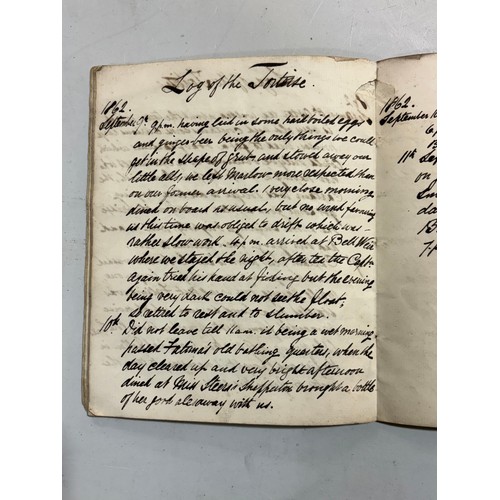 Log of the Tortoise.
1862.
September 9th 9pm. having laid in some hard boiled eggs
and ginger beer being the only things we could
get in the shape of grub and stowd away our
little all, we left Marlow more respected than
on our former arrival. Very close morning
dined on board as usual, but no wind favouring
us this time was obliged to drift which was
rather slow work. 4pm. arrived at Bell Weir
where we stayed the night, after tea the Capt
again tried his hand at fishing but the evening
being very dark could not see the float,
so retired to rest and to slumber.
10th Did not leave till 11am. it being a wet morning
passed Fatima's old bathing quarters, when the
day cleared up and very bright afternoon
dined at Miss Steers's Shepperton brought a bottle
of her good ale away with us.
1862.
September 1
11th
on
da